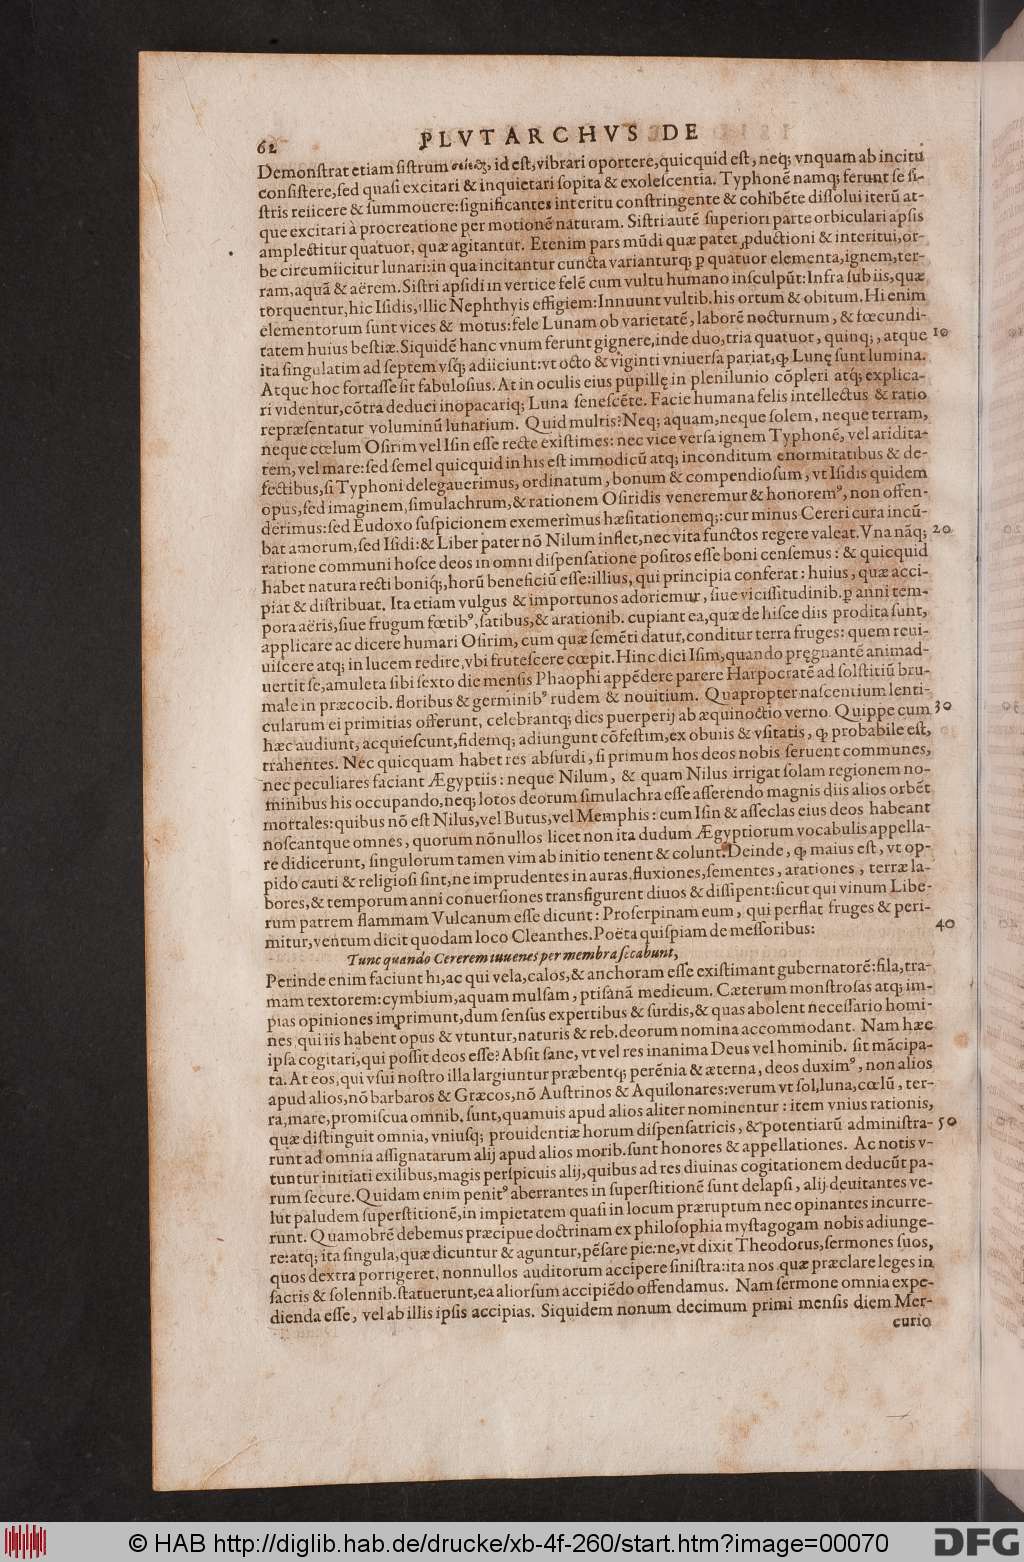 62 PLVTARCHVS DE
Demonſtrat etiam ſiſtrum σείεσθαι, id eſt, vibrari oportere, quicquid eſt, neq; vnquam ab incitu
conſiſtere, ſed quaſi excitari & inquietari ſopita & exoleſcentia. Typhonē namq; ferunt ſe ſi-
ſtris reiicere & ſummouere: ſignificantes interitu conſtringente & cohibēte diſſolui iterū at-
que excitari à procreatione per motionē naturam. Siſtri autē ſuperiori parte orbiculari apſis
amplectitur quatuor, quæ agitantur. Etenim pars mūdi quæ patet ꝓductioni & interitui, or-
be circumiicitur lunari: in qua incitantur cuncta varianturq; ꝑ quatuor elementa, ignem, ter-
ram, aquā & aërem. Siſtri apſidi in vertice felē cum vultu humano inſculpūt: Infra ſub iis, quæ
torquentur, hic Iſidis, illic Nephthyis effigiem: Innuunt vultib. his ortum & obitum. Hi enim
elementorum ſunt vices & motus: fele Lunam ob varietatē, laborē nocturnum, & fœcundi-
tatem huius beſtiæ. Siquidē hanc vnum ferunt gignere, inde duo, tria quatuor, quinq;, atque 10
ita ſingulatim ad ſeptem vſq́; adiiciunt: vt octo & viginti vniuerſa pariat, ꝙ Lunę ſunt lumina.
Atque hoc fortaſſe ſit fabuloſius. At in oculis eius pupillę in plenilunio cōpleri atq; explica-
ri videntur, cōtra deduci inopacariq; Luna ſeneſcēte. Facie humana felis intellectus & ratio
repræſentatur voluminū lunarium. Quid multis? Neq; aquam, neque ſolem, neque terram,
neque cœlum Oſirim vel Iſin eſſe recte exiſtimes: nec vice verſa ignem Typhonē, vel aridita-
tem, vel mare: ſed ſemel quicquid in his eſt immodicū atq; inconditum enormitatibus & de-
fectibus, ſi Typhoni delegauerimus, ordinatum, bonum & compendioſum, vt Iſidis quidem
opus, ſed imaginem, ſimulachrum, & rationem Oſiridis veneremur & honoremꝰ, non offen-
derimus: ſed Eudoxo ſuſpicionem exemerimus hæſitationemq;: cur minus Cereri cura incū-
bat amorum, ſed Iſidi: & Liber pater nō Nilum inflet, nec vita functos regere valeat. Vna nāq; 20
ratione communi hoſce deos in omni diſpenſatione poſitos eſſe boni cenſemus: & quicquid
habet natura recti boniq́;, horū beneficiū eſſe: illius, qui principia conferat: huius, quæ acci-
piat & diſtribuat. Ita etiam vulgus & importunos adoriemur, ſiue viciſſitudinib. ꝑ anni tem-
pora aëris, ſiue frugum fœtibꝰ, ſatibus, & arationib. cupiant ea, quæ de hiſce diis prodita ſunt,
applicare ac dicere humari Oſirim, cum quæ ſemēti datur, conditur terra fruges: quem reui-
uiſcere atq; in lucem redire, vbi fruteſcere cœpit. Hinc dici Iſim, quando pręgnantē animad-
uertit ſe, amuleta ſibi ſexto die menſis Phaophi appēdere parere Harpocratē ad ſolſtitiū bru-
male in præcocib. floribus & germinibꝰ rudem & nouitium. Quapropter naſcentium lenti-
cularum ei primitias offerunt, celebrantq; dies puerperij ab æquinoctio verno. Quippe cum 30
hæc audiunt, acquieſcunt, fidemq; adiungunt cōfeſtim, ex obuiis & vſitatis, ꝙ probabile eſt,
trahentes. Nec quicquam habet res abſurdi, ſi primum hos deos nobis ſeruent communes,
nec peculiares faciant Ægyptiis: neque Nilum, & quam Nilus irrigat ſolam regionem no-
minibus his occupando, neq; lotos deorum ſimulachra eſſe aſſerendo magnis diis alios orbēt
mortales: quibus nō eſt Nilus, vel Butus, vel Memphis: cum Iſin & aſſeclas eius deos habeant
noſcantque omnes, quorum nōnullos licet non ita dudum Ægyptiorum vocabulis appella-
re didicerunt, ſingulorum tamen vim ab initio tenent & colunt. Deinde, ꝙ maius eſt, vt op-
pido cauti & religioſi ſint, ne imprudentes in auras, fluxiones, ſementes, arationes, terræ la-
bores, & temporum anni conuerſiones transfigurent diuos & diſſipent: ſicut qui vinum Libe-
rum patrem flammam Vulcanum eſſe dicunt: Proſerpinam eum, qui perflat fruges & peri-
mitur, ventum dicit quodam loco Cleanthes. Poëta quiſpiam de meſſoribus: 40
Tunc quando Cererem iuuenes per membra ſecabunt,
Perinde enim faciunt hi, ac qui vela, calos, & anchoram eſſe exiſtimant gubernatorē: fila, tra-
mam textorem: cymbium, aquam mulſam, ptiſanā medicum. Cæterum monſtroſas atq; im-
pias opiniones imprimunt, dum ſenſus expertibus & ſurdis, & quas abolent neceſſario homi-
nes qui iis habent opus & vtuntur, naturis & reb. deorum nomina accommodant. Nam hæc
ipſa cogitari, qui poſſit deos eſſe? Abſit ſane, vt vel res inanima Deus vel hominib. ſit mācipa-
ta. At eos, qui vſui noſtro illa largiuntur præbentq; perēnia & æterna, deos duximꝰ, non alios
apud alios, nō barbaros & Græcos, nō Auſtrinos & Aquilonares: verum vt ſol, luna, cœlū, ter-
ra, mare, promiſcua omnib. ſunt, quamuis apud alios aliter nominentur: item vnius rationis,
quæ diſtinguit omnia, vniuſq; prouidentiæ horum diſpenſatricis, & potentiarū adminiſtra- 50
runt ad omnia aſſignatarum alij apud alios morib. ſunt honores & appellationes. Ac notis v-
tuntur initiati exilibus, magis perſpicuis alij, quibus ad res diuinas cogitationem deducūt pa-
rum ſecure. Quidam enim penitꝰ aberrantes in ſuperſtitionē ſunt delapſi, alij deuitantes ve-
lut paludem ſuperſtitionē, in impietatem quaſi in locum præruptum nec opinantes incurre-
runt. Quamobrē debemus præcipue doctrinam ex philoſophia myſtagogam nobis adiunge-
re: atq; ita ſingula, quæ dicuntur & aguntur, pēſare pie: ne, vt dixit Theodorus, ſermones ſuos,
quos dextra porrigeret, nonnullos auditorum accipere ſiniſtra: ita nos quæ præclare leges in
ſacris & ſolennib. ſtatuerunt, ea aliorſum accipiēdo offendamus. Nam ſermone omnia expe-
dienda eſſe, vel ab illis ipſis accipias. Siquidem nonum decimum primi menſis diem Mer-
curio
© HAB http://diglib.hab.de/drucke/xb-4f-260/start.htm?image=00070 DFG